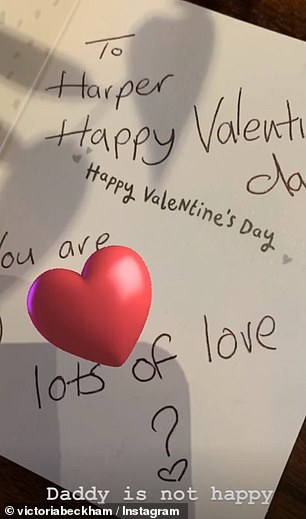 To
Harper
Happy Valenti
da
Happy Valentine's Day
You are
lots of love
?
Daddy is not happy
victoriabeckham / Instagram